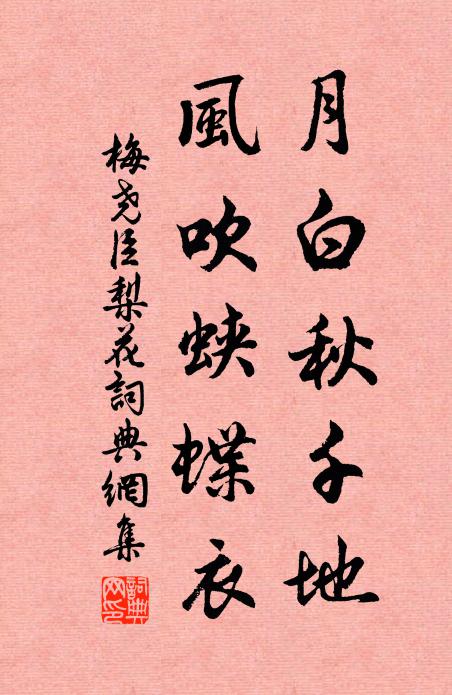 月白秋千地
風吹蛺蝶衣
梅尧臣梨花詞典網集
詞典網印